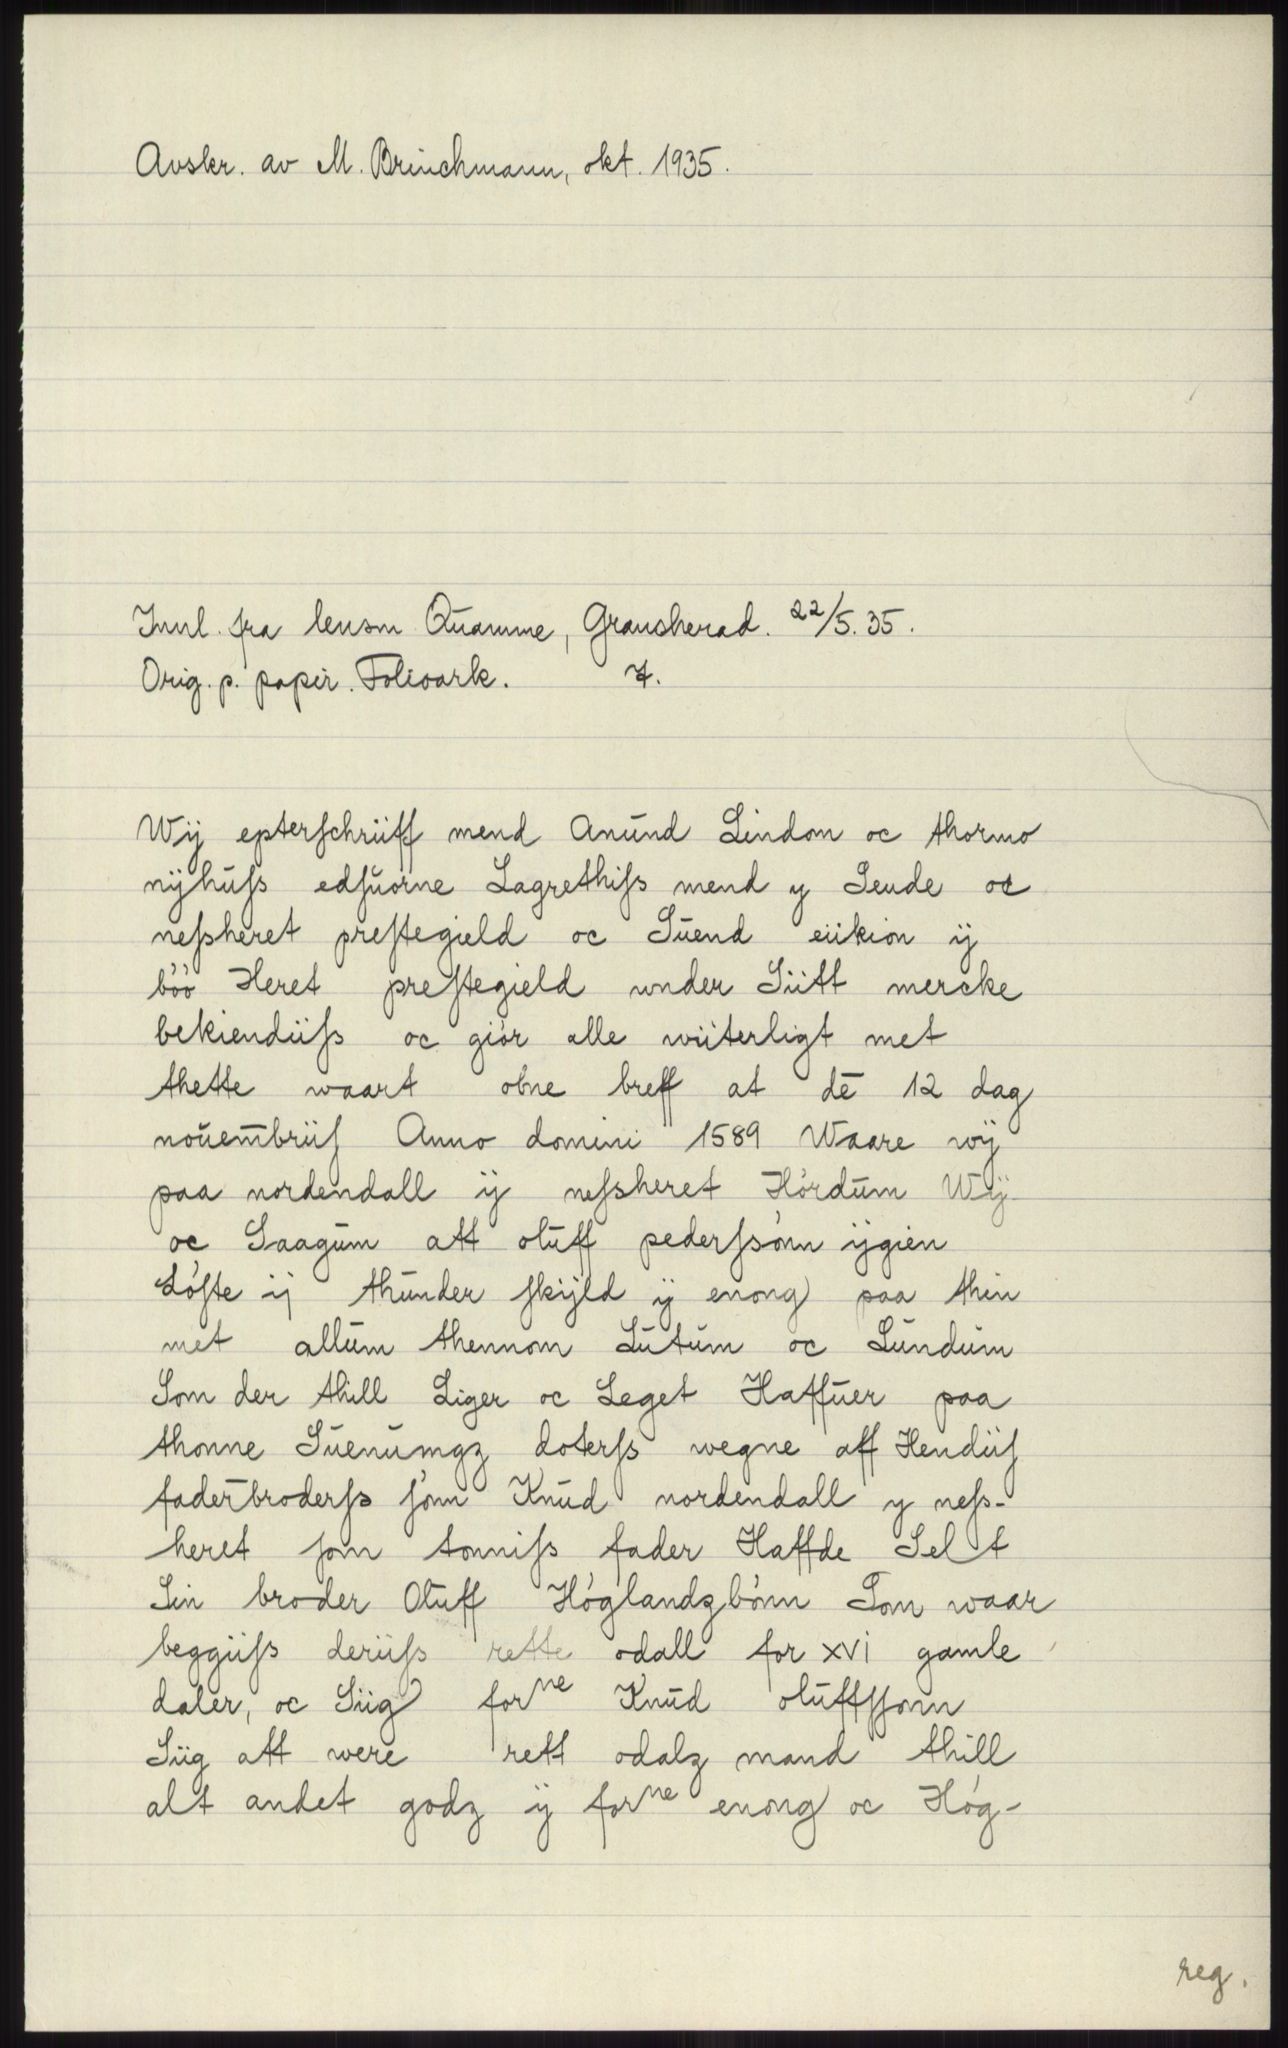 Avskr. av M. Brinchmann, okt. 1935.
Innl. fra lensm Quamme, Gransherad. 22/5. 35.
Orig. p. papir. Folioark. 7.
Wÿ epterſchriiff mend Anund Lindon oc thormo
nÿhuſs edſuorne Lagrethiſs mend y Seude oc
neſsheret preſtegield oc Suend eiikion ÿ
böö Heret preſtegield under Siitt mercke
bekiendiiſs oc giör alle wiiterligt met
thette waart obne breff at dē 12 dag
nouembriiſ Anno domini 1589 Waare wÿ
paa nordendall ÿ neſsheret Hördum Wÿ
oc Saagum att oluff pederſsönn ÿgien
Löſte ij thunder ſkÿld ÿ enong paa thin
met allum thennom Lutum oc Lundum
Som der thill Liger oc Leget Haffuer paa
thonne Suenumgz doterſs wegne aff Hendiiſ
faderbroderſs ſönn Knud nordendall y neſs-
heret ſom tonniſs fader Haffde Selt
Sin broder Oluff Höglandzbönn Som waar
beggiiſs deriiſs rette odall for xvi gamle
daler, oc Siig forne Knud oluffſsonn
Siig att were rett odalz mand thill
alt andet godz ÿ forne enong oc Hög-
reg.